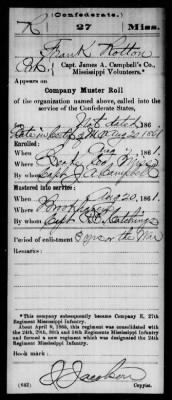 (Confederate.)
R 27 Miss.
Frank Rotton
Pvt., Capt. James A. Campbell's Co.,
Mississippi Volunteers.*
Appears on
Company Muster Roll
of the organization named above, called into the
service of the Confederate States,
Not dated
date
Enrolled:
When Aug, 186 1.
Where Miss
By whom Capt J. A. Campbell
Mustered into service:
When Aug 20, 186 1.
Where
By whom Capt
Period of enlistment 3 yrs or the War
Remarks:
*This company subsequently became Company E, 27th
Regiment Mississippi Infantry.
About April 9, 1865, this regiment was consolidated with
the 24th, 29th, 30th and 34th Regiments Mississippi Infantry
and formed a new regiment which was designated the 24th
Regiment Mississippi Infantry.
Book mark:
J. Jacobson
(642) Copyist.